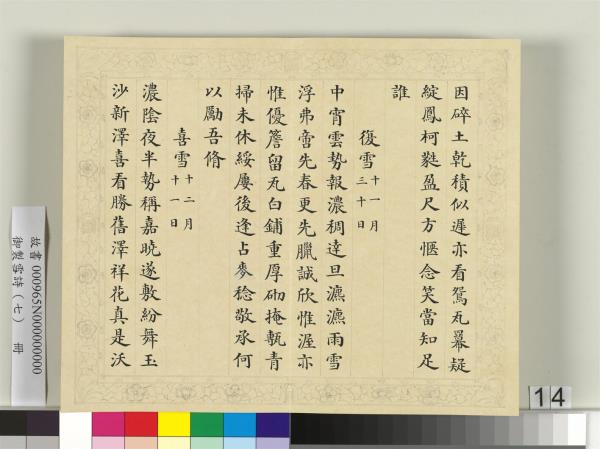 因碎土乾積似遲亦看鴛瓦冪疑
綻鳳柯㲲盈尺方愜念笑當知足
誰
復雪十一月三十日
中宵雲勢報濃稠達旦瀌瀌雨雪
浮弗啻先春更先臘誠欣惟渥亦
惟優簷留瓦白鋪重厚砌掩甎青
掃未休綏屢後逢占麥稔敬承何
以勵吾脩
喜雪十二月十一日
濃陰夜半勢稱嘉曉遂敷紛舞玉
沙新澤喜看勝舊澤祥花真是沃
故書 000965N000000000
御製雪詩(七) 冊
14